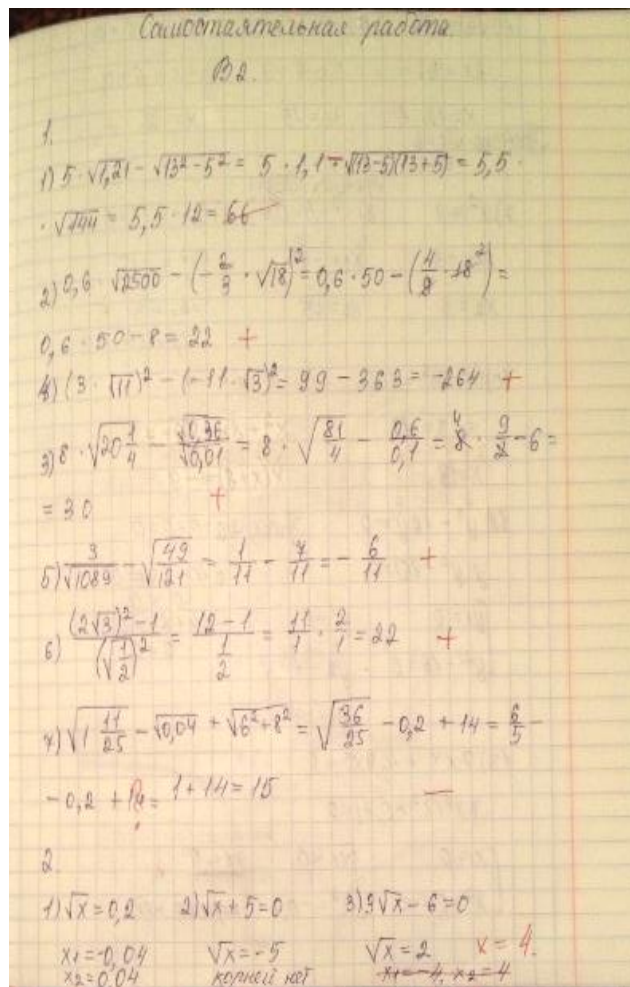 Самостаятельная работа.
В2.
1.
1) 5 · √1,21 - √13² - 5² = 5 · 1,1 - √(13-5)(13+5) = 5,5 ·
· √144 = 5,5 · 12 = 66
2) 0,6 · √2500 - (-2/3 · √18)² = 0,6 · 50 - (4/9 · 18²) =
0,6 · 50 - 8 = 22 +
4) (3 · √11)² - (-11 · √3)² = 99 - 363 = -264 +
3) 8 · √20 1/4 - √0,36/√0,01 = 8 · √81/4 - 0,6/0,1 = 8 4 · 9/2 - 6 =
= 30 +
5) 3/√1089 - √49/121 = 1/11 - 7/11 = - 6/11 +
6) (2√3)² - 1/(√1/2)² = 12 - 1/1/2 = 11/1 · 2/1 = 22 +
7) √1 11/25 - √0,04 + √6² + 8² = √36/25 - 0,2 + 14 = 6/5 -
- 0,2 + 14 = 1 + 14 = 15 —
2.
1) √x = 0,2 2) √x + 5 = 0 3) 3√x - 6 = 0
x1 = -0,04 √x = -5 √x = 2 x = 4.
x2 = 0,04 корней нет x1 = -4, x2 = 4